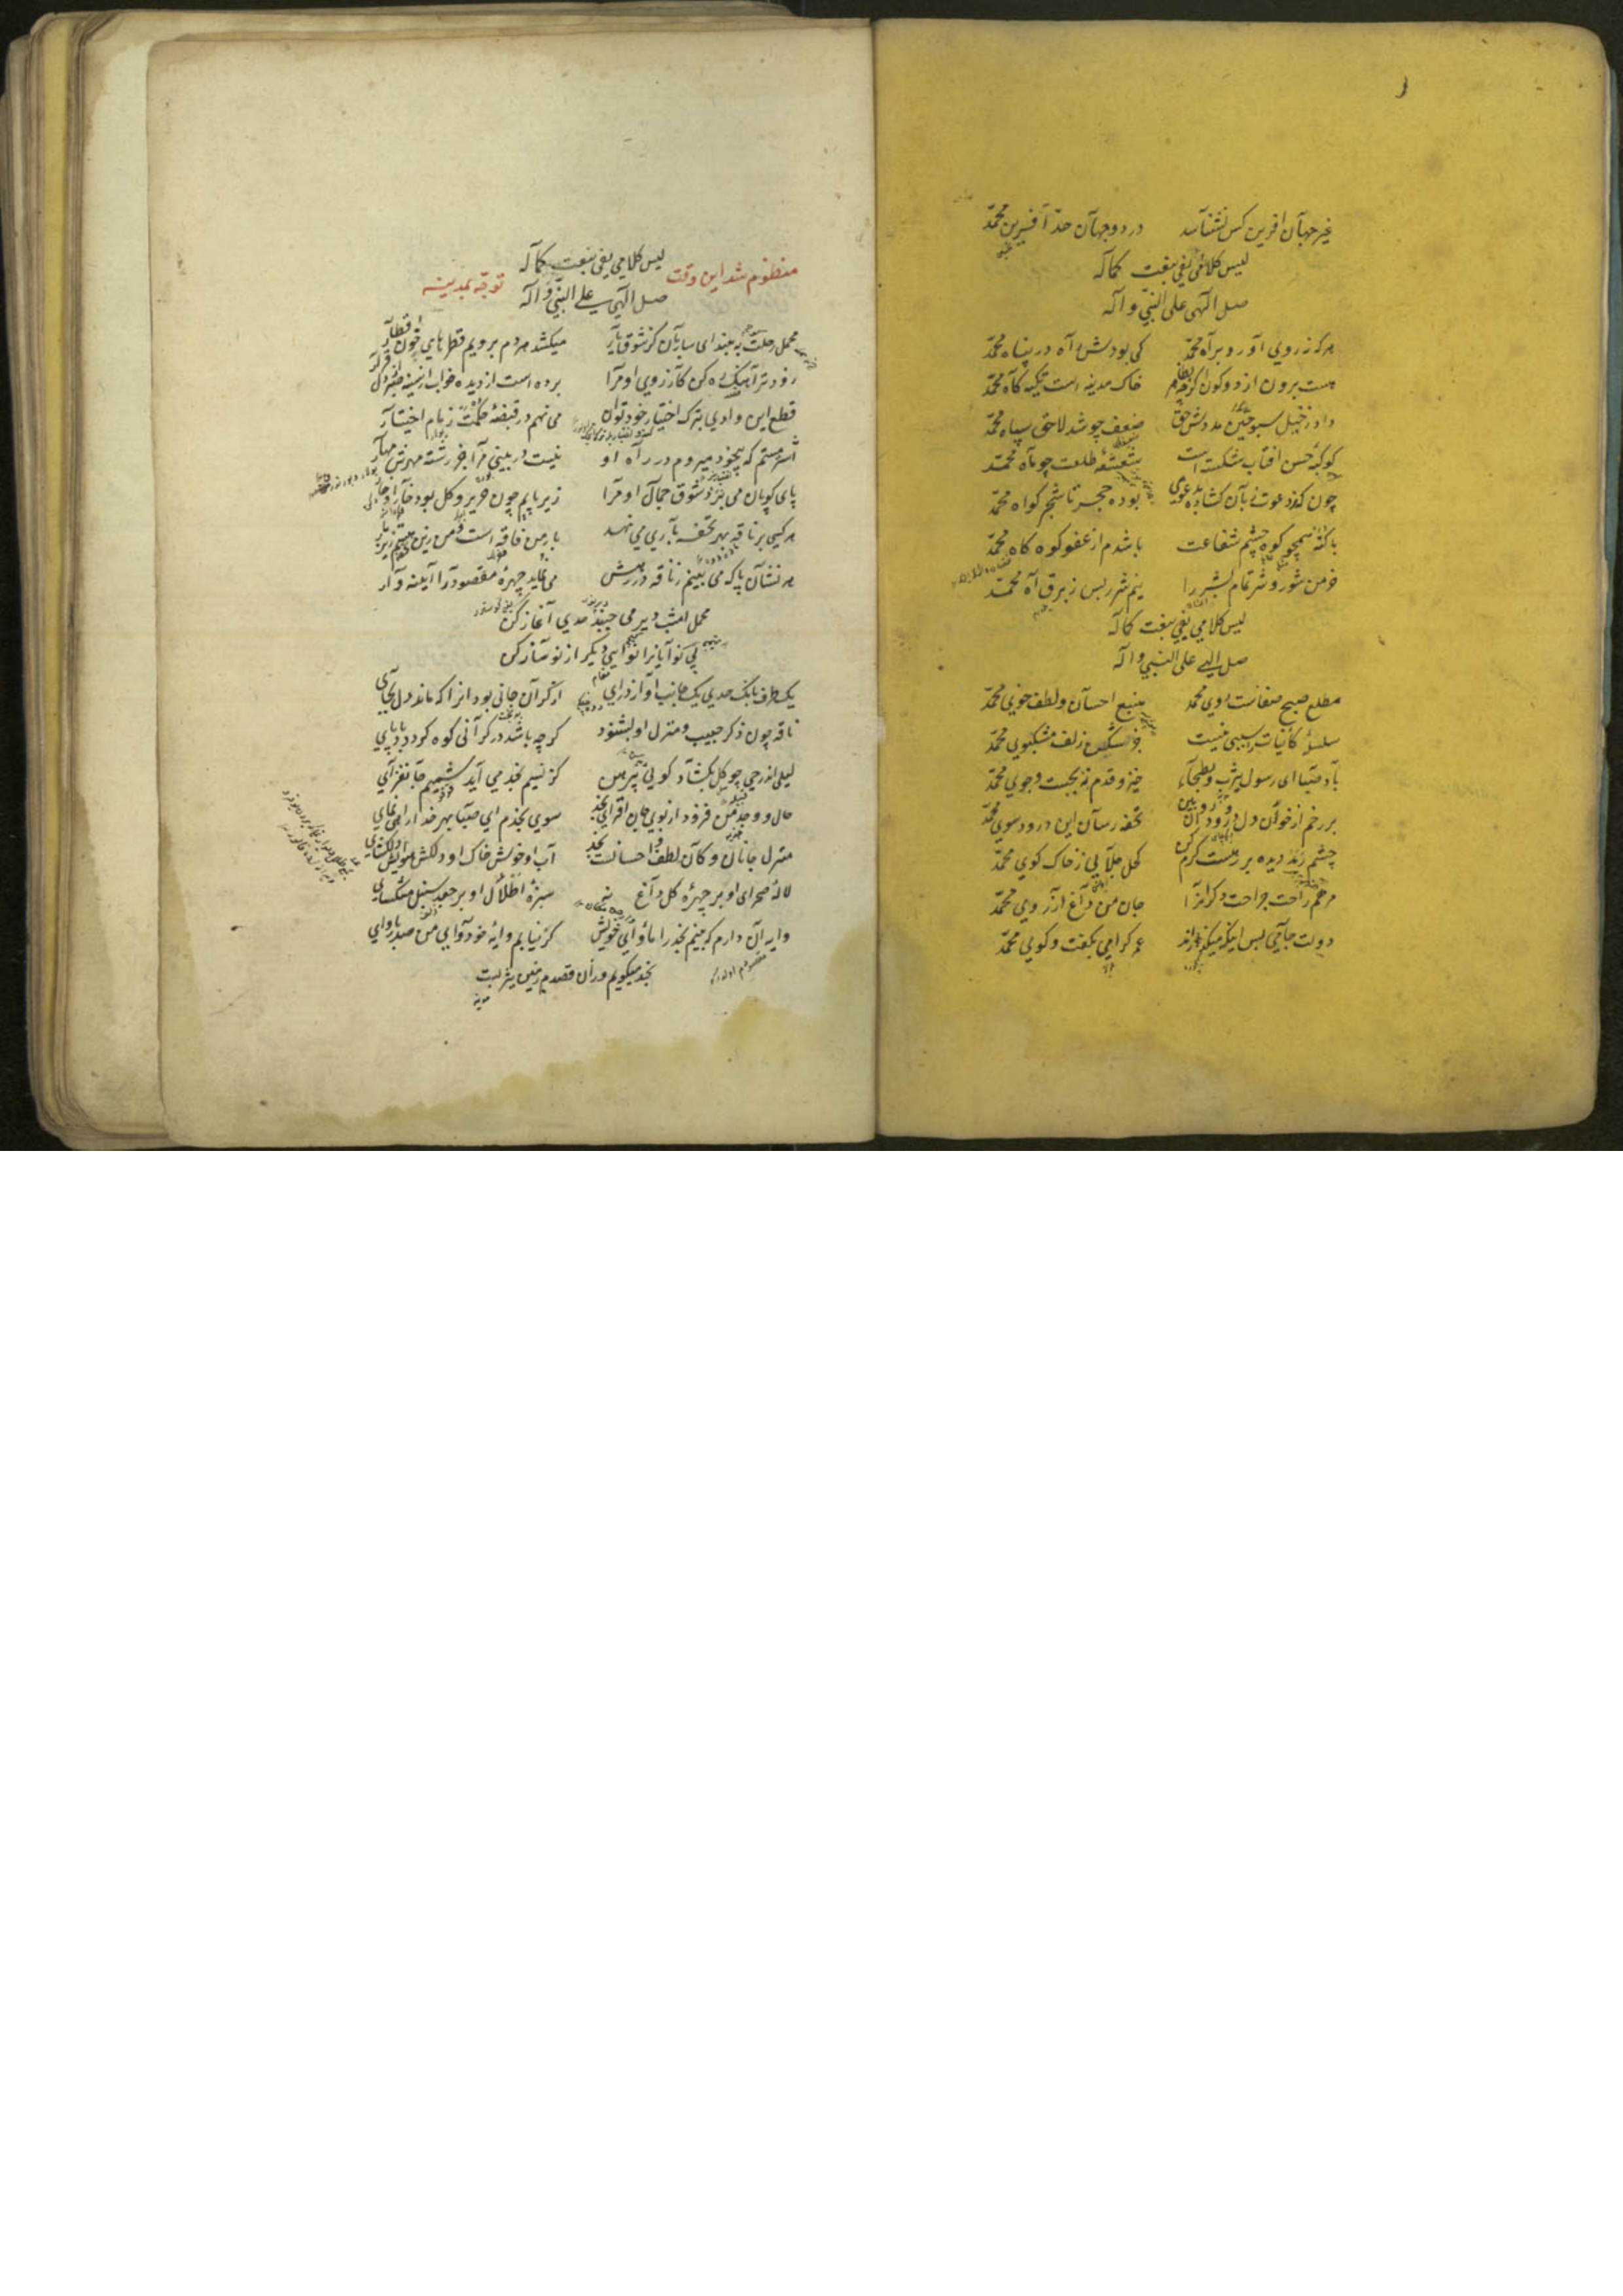 غیر جهان آفرین کس نشناسد در دو جهان حد آفرین محمد
لیس کلامی یفی بنعت کماله
صل الهی علی النبی و آله
هر که ز روی آورد براه محمد کی بودش راه در پناه محمد
هست برون از دو کون اگر چه خاک مدینه است تکیه گاه محمد
داد ز خیل سبو حیان مددش حق ضعف چو شد لاحق سپاه محمد
کوکبه حسن آفتاب شکسته است شعشعه طلعت چو ماه محمد
چون کند دعوت زبان گشاده بدعوی بوده حجر تا شجر گواه محمد
با گنه همچو کوه چشم شفاعت باشدم از عفو کوه کاه محمد
خرمن شور و شر تمام بشر را نیم شرر بس ز برق آه محمد
لیس کلامی یفی بنعت کماله
صل الهی علی النبی و آله
مطلع صبح صفاست روی محمد منبع احسان و لطف خوی محمد
سلسله کاینات را سببی نیست جز شکن زلف مشکبوی محمد
باد صبا ای رسول یثرب و بطحاء خیز و قدم نه بجست و جوی محمد
بر رخم از خوان دل درود بین تحفه رسان این درود سوی محمد
چشم رمد دیده بر رهست کرم کن کحل جلایی ز خاک کوی محمد
مرهم راحت جراحت دگرانرا جان من و داغ آرزوی محمد
دولت جامی بس اینکه میگذراند عمر گرامی بگفت و گوی محمد
منظوم شد این وقت توجه بمدینه
لیس کلامی یفی بنعت کماله
صل الهی علی النبی و آله
محمل رحلت به بند ای ساربان کز شوق یار میکشد هر دم برویم قطرهای خون قطار
زودتر آهنگ ره کن کآرزوی او مرا برده است از دیده خواب از سینه صبر از دل قرار
قطع این وادی بترک اختیار خود توان می نهم در قبضه حکمت زمام اختیار
اشتر مستم که بیخود میروم در راه او نیست در بینی مرا جز رشته مهرش مهار
پای کوبان می برد شوق جمال او مرا زیر پایم چون حریر و گل بود خارا و خار
هر کسی بر ناقه بهر تحفه باری می نهد بار من فاقه است و من زین تحفه هستم زیر بار
هر نشان پا که می بینم ز ناقه در رهش می نماید چهره مقصود را آیینه وار
محمل امشب دیر می جنبد حدی آغاز کن
بی نوایانرا نوایی دیگر از نو ساز کن
یکطرف بانگ حدی یکجانب آواز درای از گران جانی بود انرا که ماند دل بجای
ناقه چون ذکر حبیب و منزل او بشنود گر چه باشد در گرانی کوه گردد باد پای
لیلی اندر حی چو گل بگشاد گویی پیرهن کز نسیم نجد می آید شمیم جانفزای
حال و وجد من فزود از بوی جان افزای نجد سوی نجدم ای صبا بهر خدا راهی نمای
منزل جانان و کان لطف و احسانست نجد آب او خوش خاک او دلکش هوایش دلگشای
لاله صحرای او بر چهره گل داغ نه سبزه اطلال او بر جعد سنبل مشکسای
وایه آن دارم که بینم نجد را ماوای خویش گر نیابم وایه خود وای من صد بار وای
نجد میگویم وزان قصدم زمین یثربست